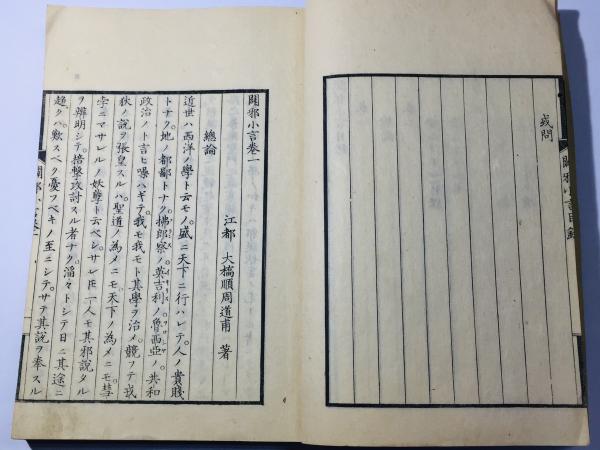 或問
闢邪小言目録
闢邪小言巻一
江都 大橋順周道甫 著
總論
近世ハ西洋ノ學ト云モノ。盛ニ天下ニ行ハレテ。人ノ貴賤
トナク。地ノ都鄙トナク。拂郎察ノ。英吉利ノ。魯西亞ノ。共和
政治ノト言ヒ噪ハギテ。我モ我モト其學ヲ治メ。競フテ戎
狄ノ説ヲ張皇スルハ。聖道ノ為メニモ天下ノ為メニモ。彗
孛ニマサレルノ妖孽ト云ベシ。サレ𪜈一人モ其邪説タル
ヲ辨明シテ。掊撃攻討スル者ナク。滔々トシテ日ニ其途ニ
趨クハ。歎スベク憂フベキノ至ニシテ。サテ其説ヲ奉スル
闢邪小言巻一